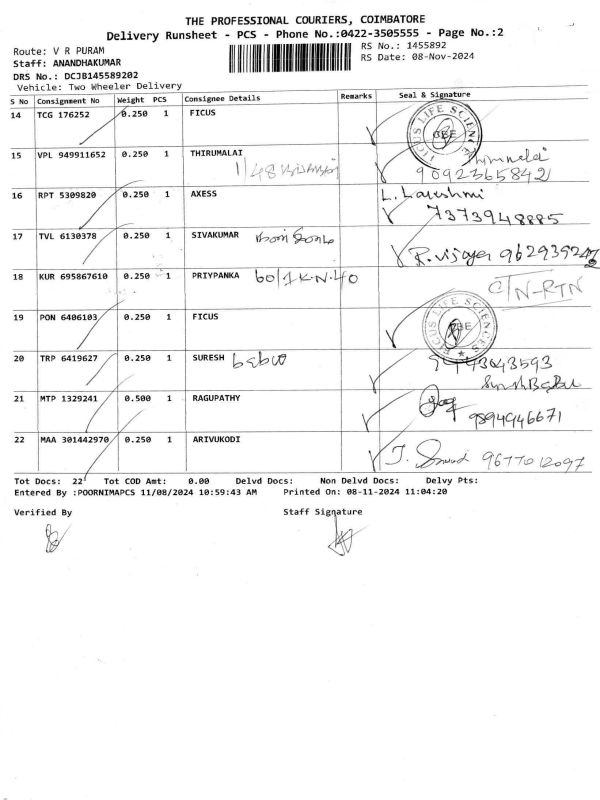 THE PROFESSIONAL COURIERS, COIMBATORE
Delivery Runsheet - PCS - Phone No.:0422-3505555 - Page No.:2
Route: V R PURAM
RS No.: 1455892
Staff: ANANDHAKUMAR
RS Date: 08-Nov-2024
DRS No.: DCJB145589202
Vehicle: Two Wheeler Delivery
S No Consignment No Weight PCS Consignee Details Remarks Seal & Signature
14 TCG 176252 0.250 1 FICUS
FICUS LIFE SCIENCES
CBE
15 VPL 949911652 0.250 1 THIRUMALAI
1/48
9092365842
16 RPT 5309820 0.250 1 AXESS
L. Lakshmi
7373948885
17 TVL 6130378 0.250 1 SIVAKUMAR
18 KUR 695867610 0.250 1 PRIYPANKA 60/1 K.N.40
CTN-RTN
19 PON 6406103 0.250 1 FICUS
FICUS LIFE SCIENCES
20 TRP 6419627 0.250 1 SURESH
Suresh Babu
21 MTP 1329241 0.500 1 RAGUPATHY
9894946671
22 MAA 301442970 0.250 1 ARIVUKODI
9677012097
Tot Docs: 22 Tot COD Amt: 0.00 Delvd Docs: Non Delvd Docs: Delvy Pts:
Entered By :POORNIMAPCS 11/08/2024 10:59:43 AM Printed On: 08-11-2024 11:04:20
Verified By Staff Signature